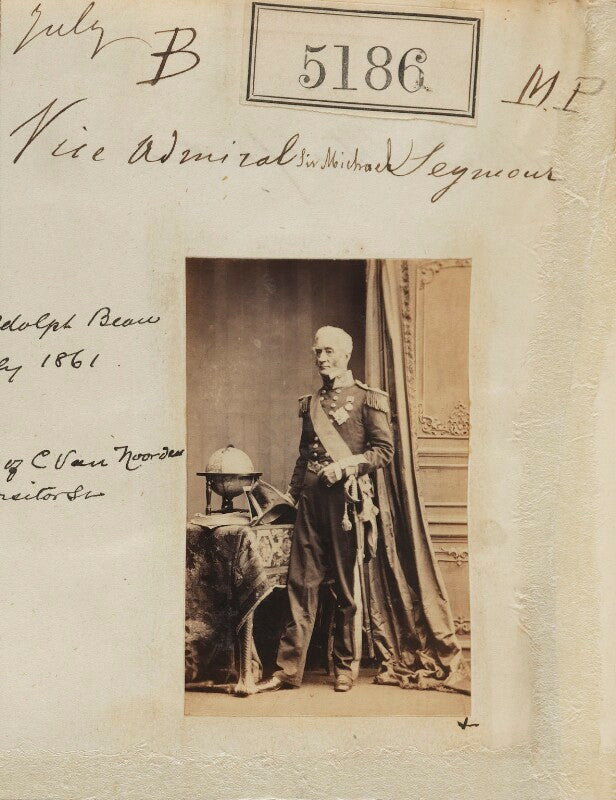 July B
5186
M.P
Vice Admiral Sir Michael Seymour
dolph Beau
ly 1861
of C Van Noorden
rsitor St